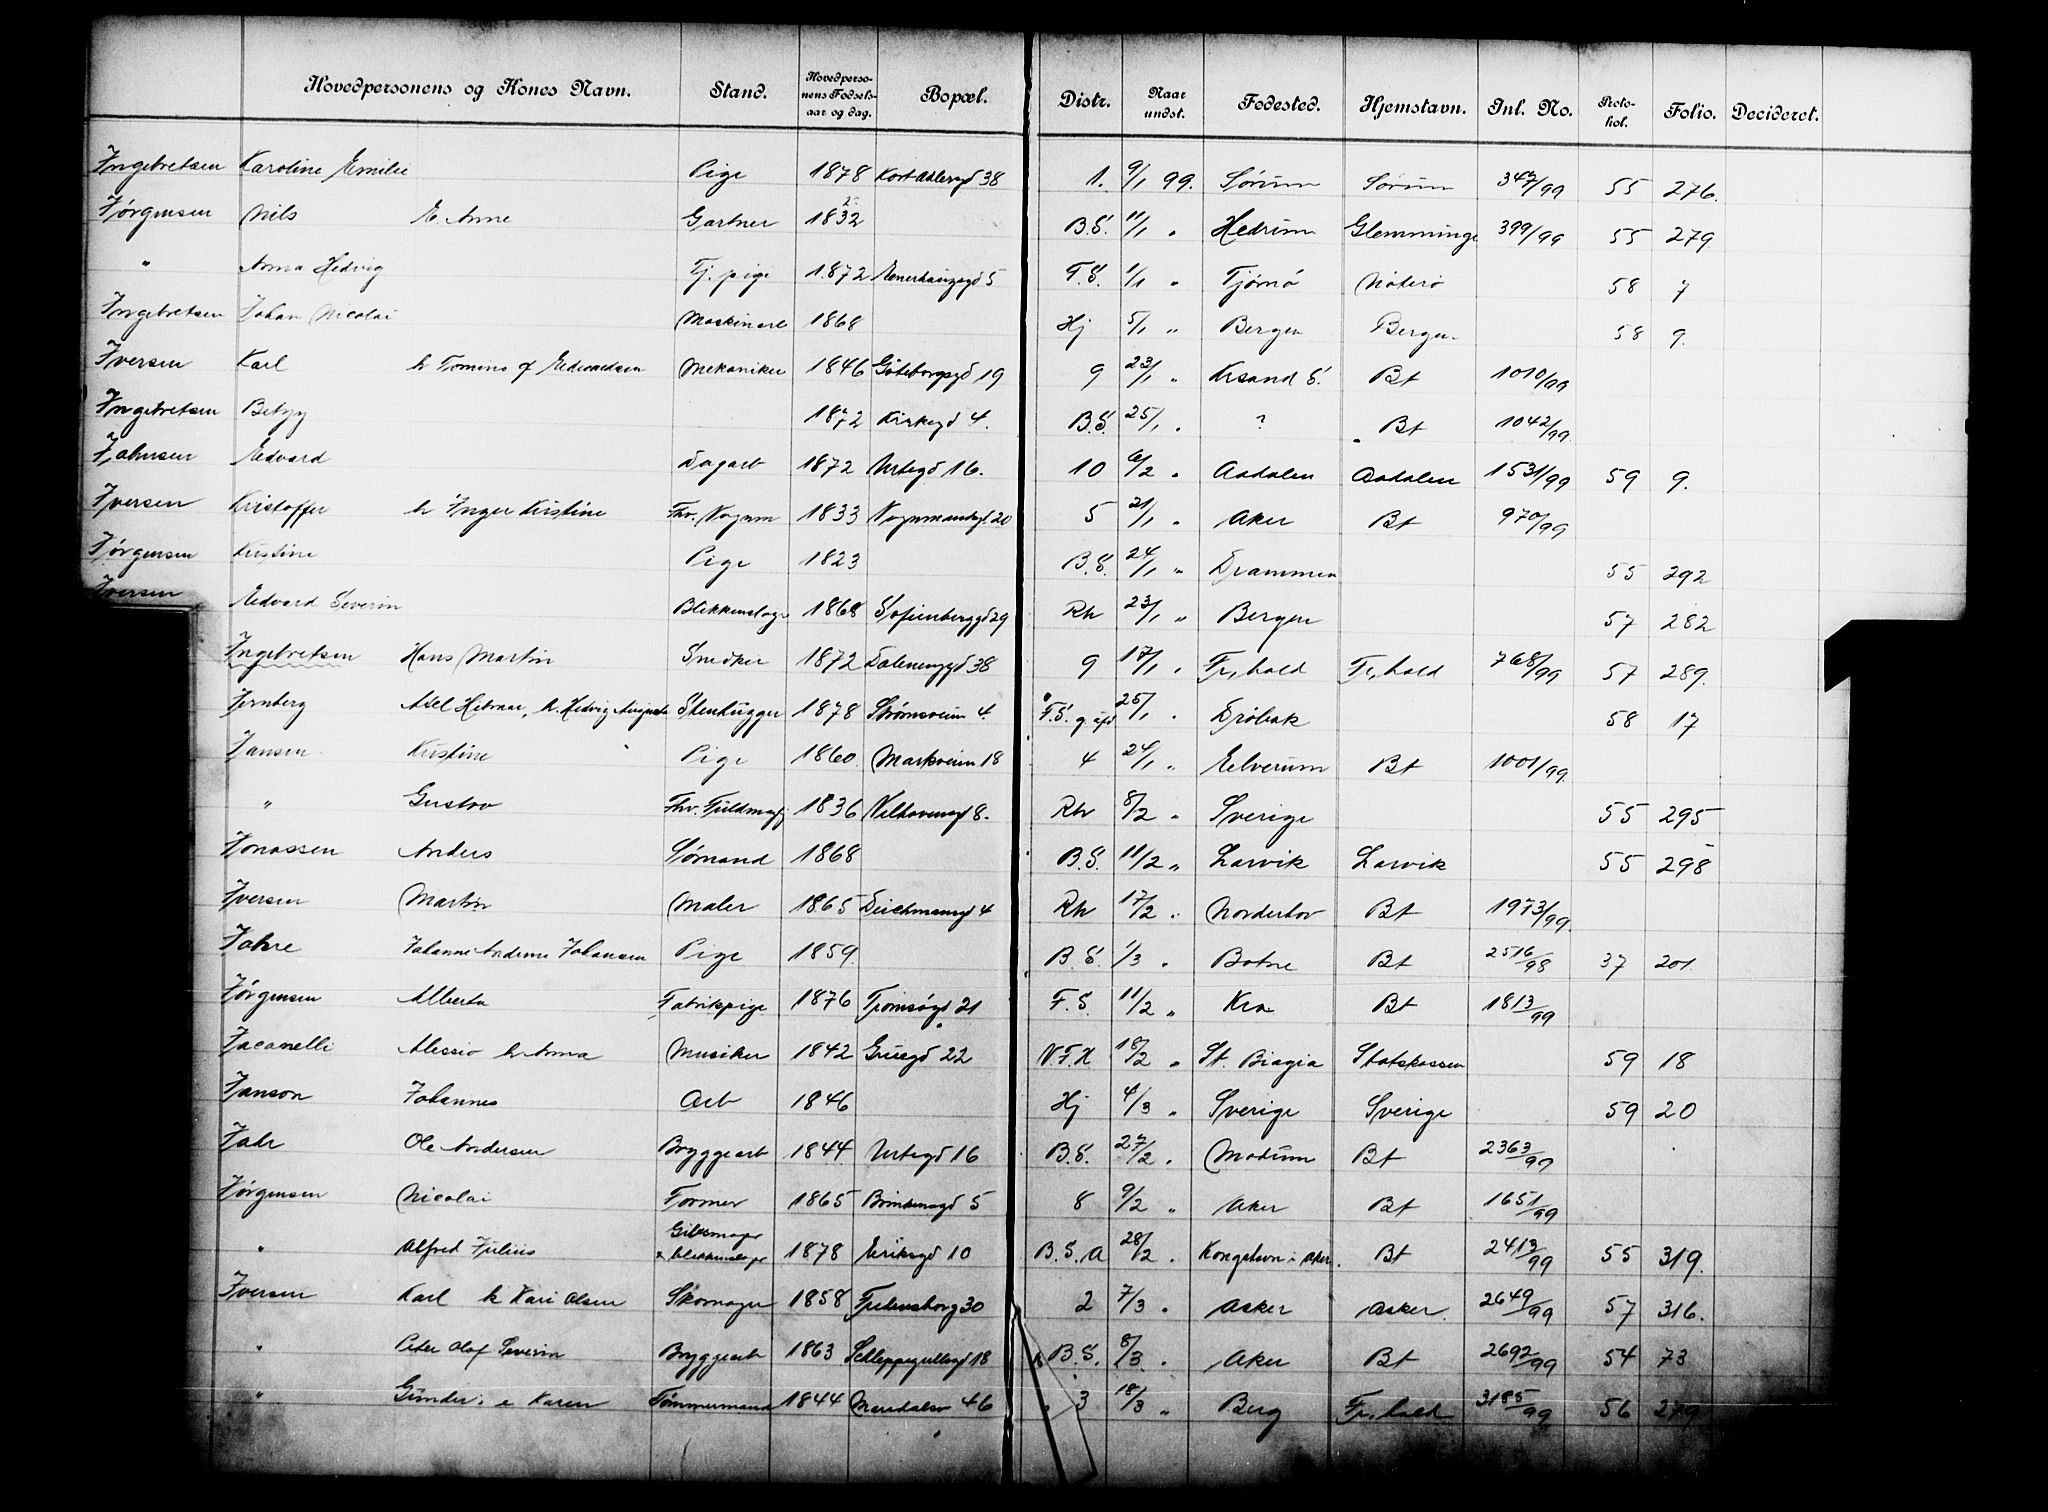 Hovedpersonens og Kones Navn. Stand. Hovedpersonens Fødselsaar og dag. Bopæl. Distr. Naar undst. Fødested. Hjemstavn. Inl. No. Protokol. Folio. Decideret.
Ingebretsen Karoline Emilie Pige 1878 Kort Adlersgd 38 1. 9/1 99. Sørum Sørum 347/99 55 276.
Jørgensen Nils E. Anne Gartner 1832 B.S. 11/1 " Hedrum Glemminge 399/99 55 279
" Anna Hedvig Tj. pige 1872 Enerhaugsgd 5 F.S. 1/1 " Tjømø Nøterø 58 7
Ingebretsen Johan Nicolai Maskinarb 1868 Hj 5/1 " Bergen Bergen 58 9.
Iversen Karl h Tomine f Edvardsen Mekaniker 1846 Göteborgsgd 19 9 23/1 " Krsand S. Bt 1010/99
Ingebretsen Betzy 1872 Kirkegd 4. B.S. 25/1 " ? Bt 1042/99.
Johnsen Edvard Dagarb 1872 Urtegd 16. 10 6/2 " Aadalen Aadalen 1531/99 59 9.
Iversen Kristoffer h Inger Kirstine Fhv. Vognm 1833 Vognmandsgd. 20 5 21/1 " Aker Bt 970/99
Jørgensen Kristine Pige 1823 B.S. 24/1 " Drammen 55 292
Iversen Edvard Severin Blikkenslager 1868 Sofienberggd 29 Rh 23/1 " Bergen 57 282
Ingebretsen Hans Martin Snedker 1872 Dælenenggd 38 9 17/1 " Fr.hald Fr.hald 768/99 57 289.
Jernberg Axel Helmar, h. Hedvig Augusta Stenhugger 1878 Strømsveien 4. F.S. 25/1 " Drøbak 58 17
Jansen Kristine Pige 1860. Markveien 18 4 24/1 " Elverum Bt 1001/99.
" Gustav Fhv. 1836 Welhavensgd 8. Rh 8/2 " Sverige 55 295
Jonassen Anders Sømand 1868 B.S. 11/2 " Larvik Larvik 55 298
Iversen Martin Maler 1865 Deichmansgd 4 Rh 17/2 " Norderhov Bt 1973/99.
Jahre Johanne Andrine Johansen Pige 1859. B.S. 1/3 " Botne Bt 2516/98 37 201.
Jørgensen Alberta Fabrikpige 1876 Tromsøgd 21 F.S. 11/2 " Kra Bt 1813/99
Jacanelli Alessio h Anna Musiker 1842 Grüegd 22 V.F.K 18/2 " St. Biagia Statskassen 59 18
Janson Johannes Arb 1846 Hj 4/3 " Sverige Sverige 59 20
Jahr Ole Andersen Bryggearb 1844. Urtegd 16 B.S. 27/2 " Modum Bt 2363/97
Jørgensen Nicolai Former 1865 Brinkensgd 5 8 9/2 " Aker Bt 1651/99
" Alfred Julius Gibsmager & blikkenslager 1878 Eriksgd 10 B.S.A 28/2 " Kongshavn i Aker. Bt 2413/99 55 319.
Iversen Karl h Kari Olsen Skomager 1858 Fredensborg 30 2 7/3 " Asker Asker. 2649/99 57 316.
" Peter Olaf Severin Bryggearb 1863 Schleppegrellsgd 18 B.S. 8/3 " Aker Bt 2692/99 54 73
" Gunder. e Karen Tømmermand 1844 Maridalsv 46 3 18/3 " Berg Fr.hald 3185/99 56 279